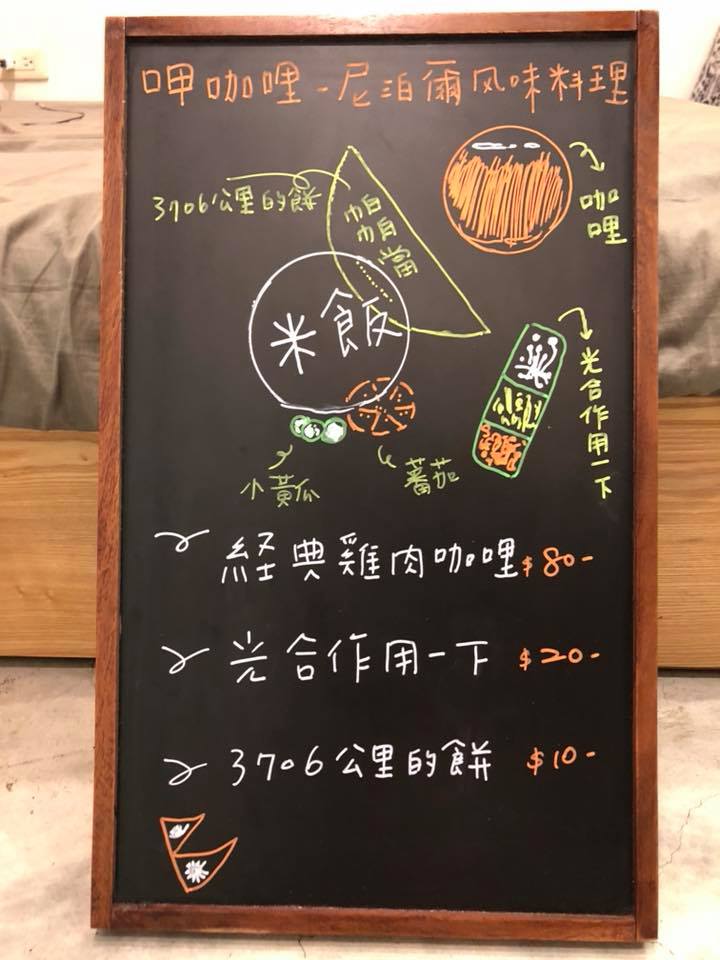 呷咖哩-尼泊爾风味料理
3706公里的餅
帕帕當
咖哩
米飯
光合作用一下
小黃瓜
蕃茄
経典雞肉咖哩$80-
光合作用一下 $20-
3706公里的餅 $10-